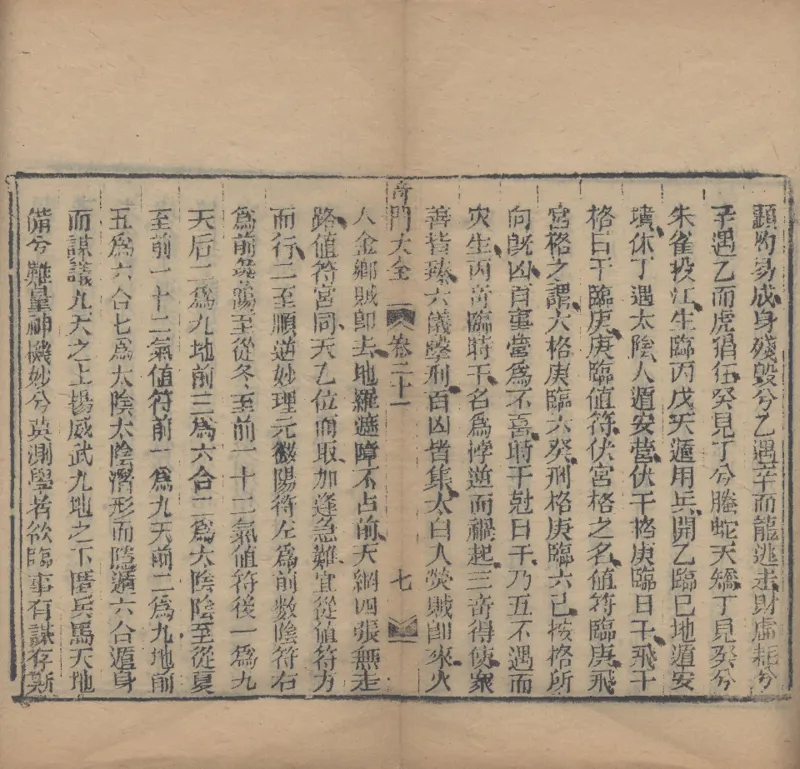 顯灼易成身殘毀兮乙遇辛而龍逃走財虛耗兮
辛遇乙而虎猖狂癸見丁兮螣蛇天矯丁見癸兮
朱雀投江生臨丙戊天遁用兵開乙臨巳地遁安
墳休丁遇太陰人遁安營伏干格庚臨日干飛干
格日干臨庚庚臨値符伏宮格之名値符臨庚飛
宮格之謂大格庚臨六癸刑格庚臨六己按格所
向既凶百事當爲不喜時干尅日干乃五不遇而
灾生丙奇臨時干名爲悖逆而禍起三奇得使衆
善皆臻六儀擊刑百凶皆集太白入熒賊卽來火
奇門大全 卷二十一 七
入金鄉賊卽去地羅遮障不占前天網四張無走
路値符宮同天乙位而取加逢急難宜從値符方
而行二至順逆妙理元微陽符左爲前數陰符右
爲前陽至從冬至前一十二氣値符後一爲九
天后二爲九地前三爲六合二爲太陰陰至從夏
至前一十二氣値符前一爲九天前二爲九地前
五爲六合七爲太陰太陰潛形而隱遁六合遁身
而謀議九天之上揚威武九地之下匿兵馬天地
備兮難量神機妙兮莫測學者欲臨事有謀存斯